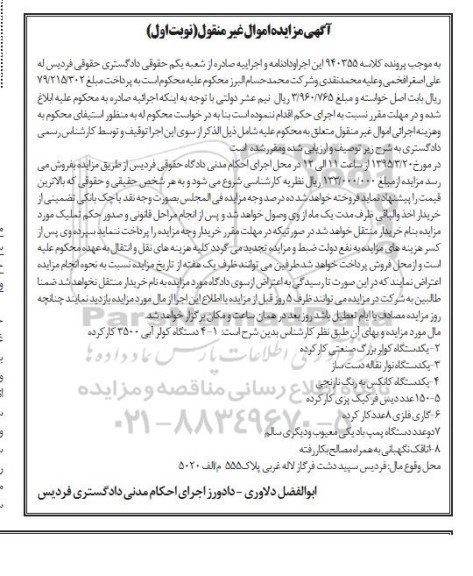 آگهی مزایده اموال غیر منقول (نوبت اول)
به موجب پرونده کلاسه ۹۴۰۳۵۵ این اجرا و دادنامه و اجراییه صادره از شعبه یکم حقوقی دادگستری حقوقی فردیس له
علی اصغر افخمی و علیه محمد نقدی و شرکت محمد حسام البرز محکوم علیه محکوم است به پرداخت مبلغ ۷۹/۲۱۵/۳۰۲
ریال بابت اصل خواسته و مبلغ ۳/۹۶۰/۷۶۵ ریال نیم عشر دولتی با توجه به اینکه اجرائیه صادره به محکوم علیه ابلاغ
شده و در مهلت مقرر نسبت به اجرای حکم اقدام ننموده است بنا به در خواست محکوم له به منظور استیفای محکوم به
وهزینه اجرائی اموال غیر منقول متعلق به محکوم علیه شامل ذیل الذکر از سوی این اجرا توقیف و توسط کارشناس رسمی
دادگستری به شرح زیر توصیف و ارزیابی شده ومقرر شده است
در مورخ ۱۳۹۵/۲/۲۰ از ساعت ۱۱ الی ۱۲ در محل اجرای احکام مدنی دادگاه حقوقی فردیس از طریق مزایده بفروش می
رسد مزایده از مبلغ ۱۳۳/۰۰۰/۰۰۰ ریال نظریه کارشناسی شروع می شود و به هر شخص حقیقی و حقوقی که بالاترین
قیمت را پیشنهاد نماید فروخته خواهد شد ده درصد وجه مزایده فی المجلس بصورت وجه نقد یا چک بانکی تضمینی از
خریدار اخذ والباقی ظرف مدت یک ماه از وی وصول خواهد شد و پس از انجام مراحل قانونی و صدور حکم تملیک مورد
مزایده بنام خریدار منتقل خواهد شد در صورتیکه در مهلت مقرر خریدار وجه مزایده را پرداخت ننماید سپرده وی پس از
کسر هزینه های مزایده به نفع دولت ضبط و مزایده تجدید می گردد کلیه هزینه های نقل و انتقال به عهده محکوم علیه
است و از محل فروش پرداخت خواهد شد طرفین می توانند ظرف یک هفته از تاریخ مزایده نسبت به نحوه انجام مزایده
اعتراض نمایند که در این صورت تا رسیدگی به اعتراض از سوی دادگاه مورد مزایده به نام خریدار منتقل نخواهد شد ضمنا
طالبین به شرکت در مزایده می توانند ظرف ۵ روز قبل از مزایده با اطلاع این اجرا از مال مورد مزایده بازدید نمایند چنانچه
روز مزایده مصادف با ایام تعطیل باشد روز بعد در همان ساعت و مکان برگزار خواهد شد
مال مورد مزایده و بهای آن طبق نظر کارشناس بدین شرح است: ۱- ۴ دستگاه کولر آبی ۳۵۰۰ کار کرده
۲- یکدستگاه کولر بزرگ صنعتی کار کرده
۳- یکدستگاه نوار نقاله دست ساز
۴- یکدستگاه کانکس به رنگ نارنجی
۵- ۱۵۰ عدد دیس فر کیک پزی کار کرده
۶- گاری فلزی ۸ عدد کار کرده
۷ دو عدد دستگاه پمپ باد یکی معیوب و دیگری سالم
۸- اتاقک نگهبانی به همراه مصالح بکار رفته
محل وقوع مال: فردیس سپید دشت فر گاز لاله غربی پلاک ۵۵۵ م/الف ۵۰۲۰
ابوالفضل دلاوری - دادورز اجرای احکام مدنی دادگستری فردیس
۰۲۱-۸۸۳۴۹۶۷۰-۵